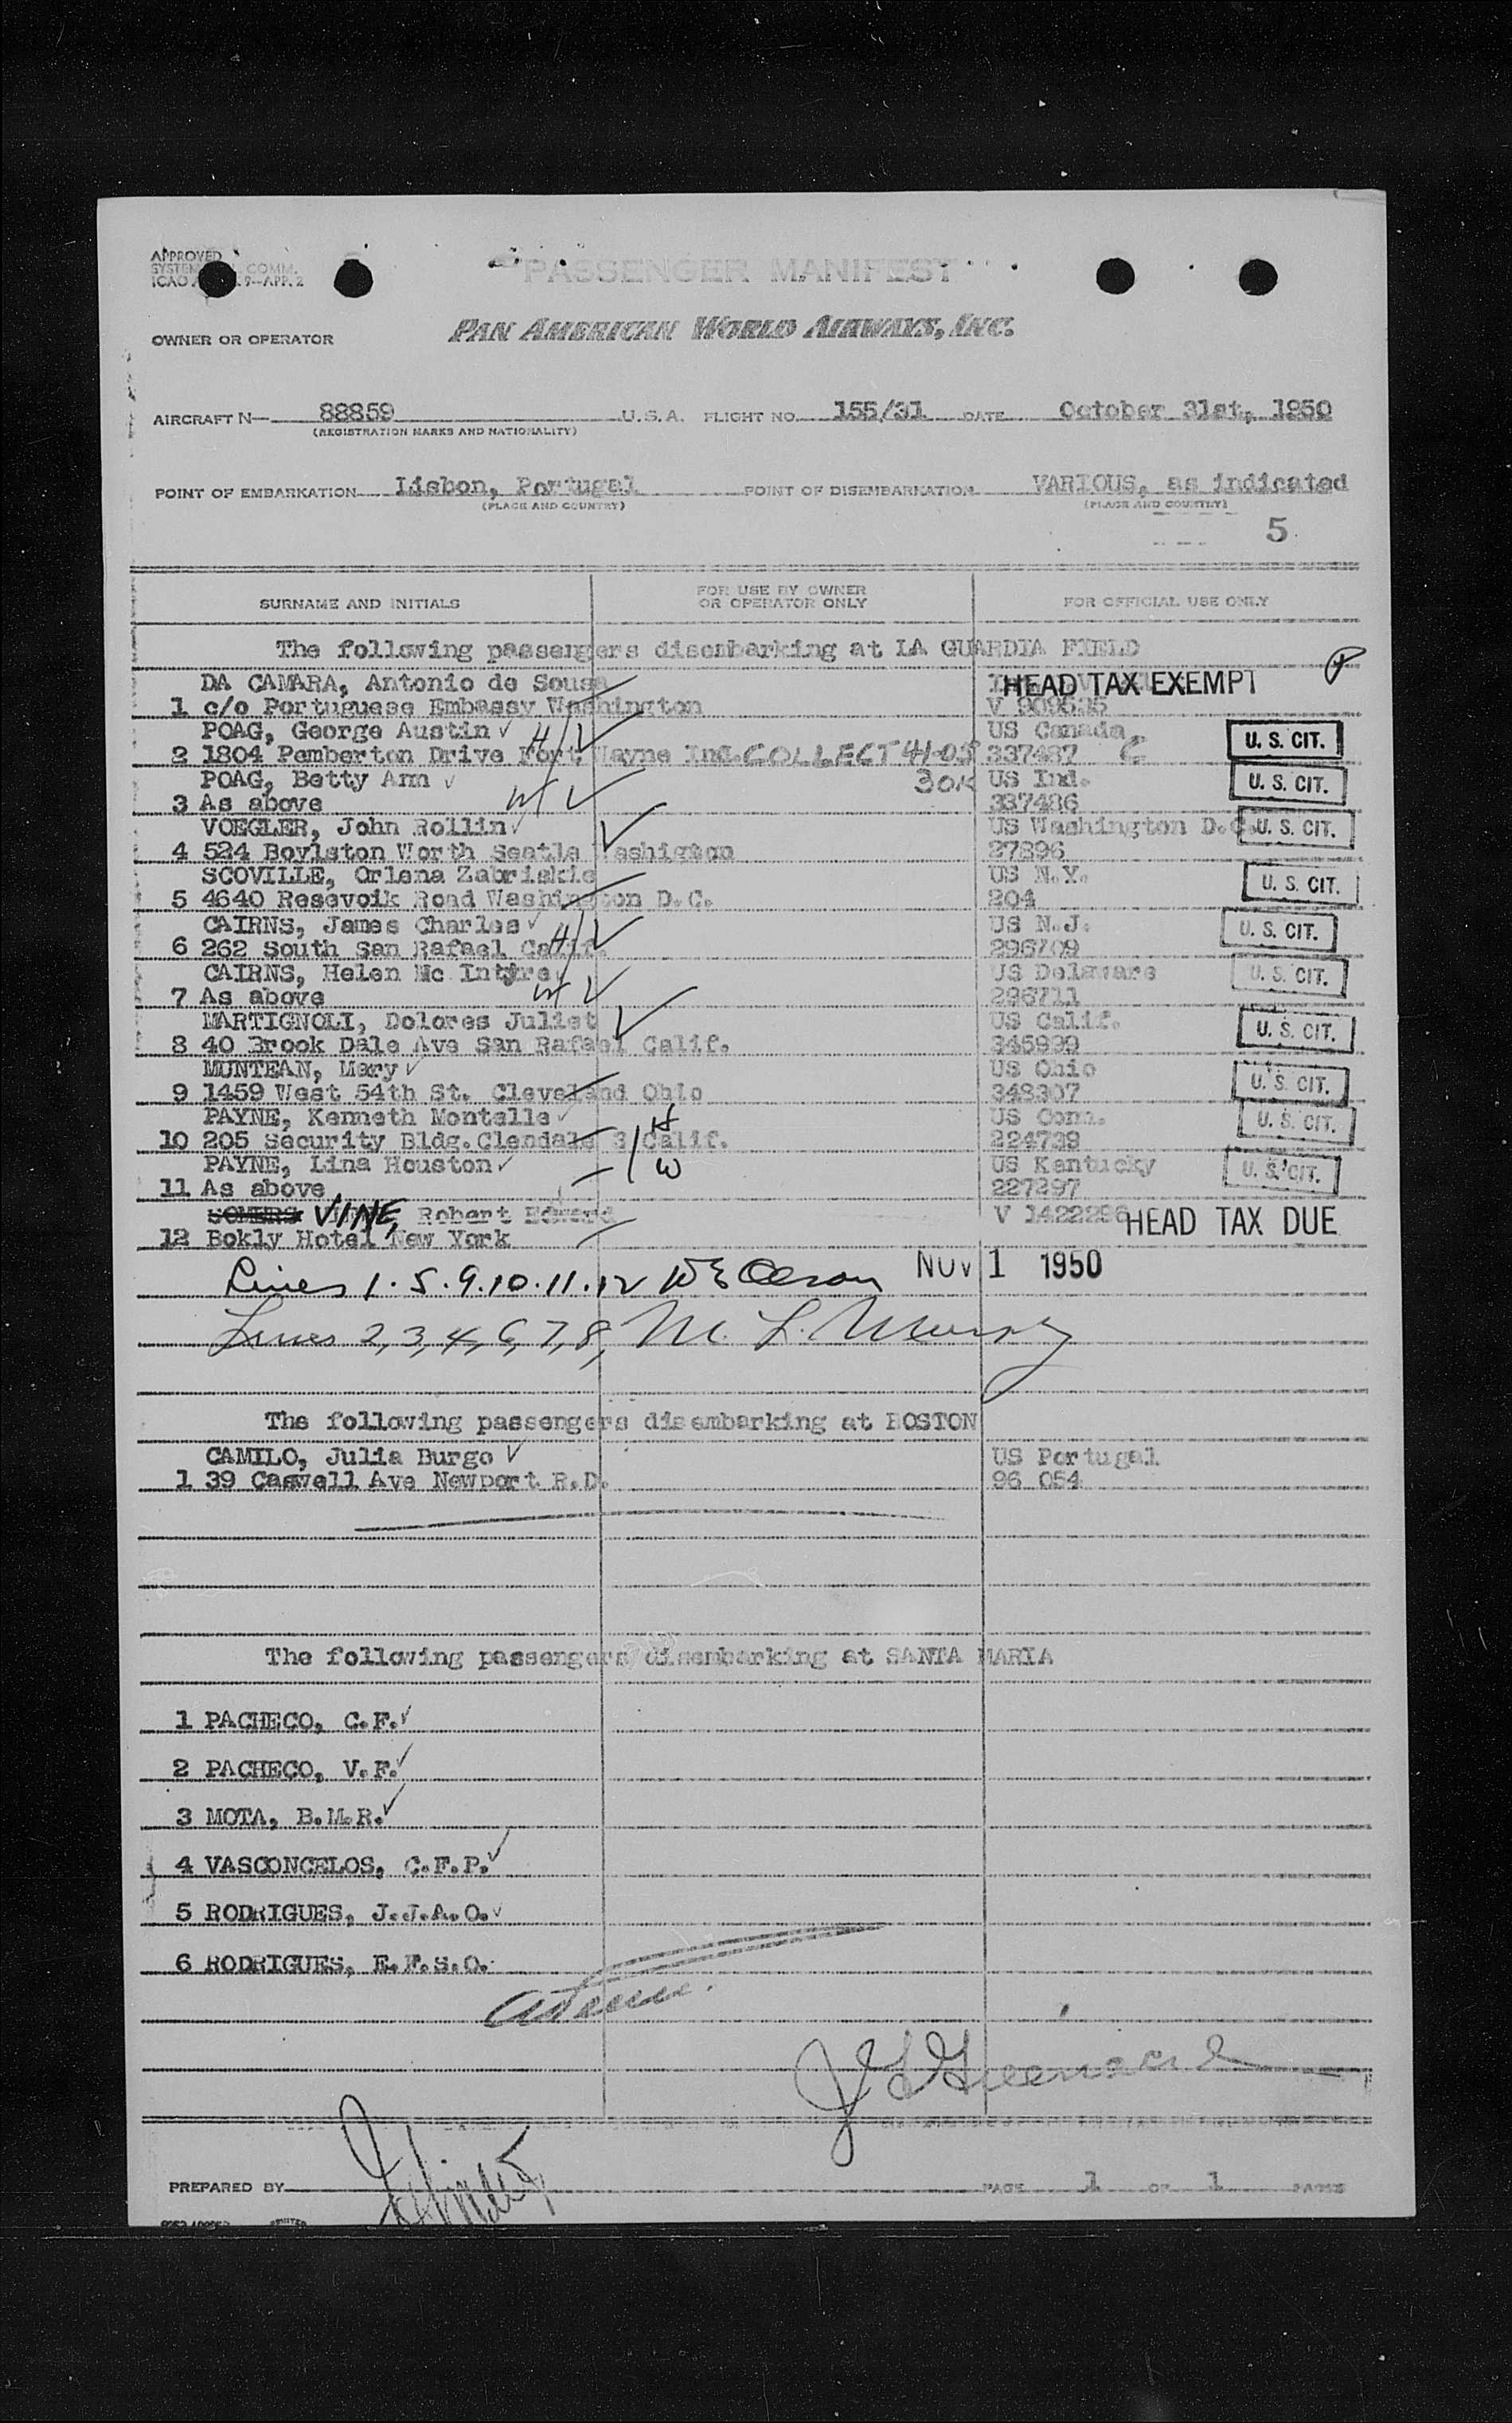 APPROVED
SYSTEM COMM.
ICAO 9—APP. 2
PASSENGER MANIFEST
OWNER OR OPERATOR PAN AMERICAN WORLD AIRWAYS, INC.
AIRCRAFT N— 88859 U.S.A. FLIGHT NO. 155/31 DATE October 31st, 1950
(REGISTRATION MARKS AND NATIONALITY)
POINT OF EMBARKATION Lisbon, Portugal POINT OF DISEMBARKATION VARIOUS, as indicated
(PLACE AND COUNTRY) (PLACE AND COUNTRY)
5
SURNAME AND INITIALS FOR USE BY OWNER OR OPERATOR ONLY FOR OFFICIAL USE ONLY
The following passengers disembarking at LA GUARDIA FIELD
DA CAMARA, Antonio de Sousa HEAD TAX EXEMPT
1 c/o Portuguese Embassy Washington V 909525
POAG, George Austin US Canada
2 1804 Pemberton Drive Fort Wayne Ind. COLLECT 337487 C U. S. CIT.
POAG, Betty Ann US Ind. U. S. CIT.
3 As above 337486
VOEGLER, John Rollin US Washington D.C. U. S. CIT.
4 524 Boylston Worth Seatle Washigton 27896
SCOVILLE, Orlena Zabriskie US N.Y. U. S. CIT.
5 4640 Resevoik Road Washington D.C. 204
CAIRNS, James Charles US N.J. U. S. CIT.
6 262 South San Rafael Calif. 296709
CAIRNS, Helen Mc Intyre US Delaware U. S. CIT.
7 As above 296711
MARTIGNOLI, Dolores Juliet US Calif. U. S. CIT.
8 40 Brook Dale Ave San Rafael Calif. 345999
MUNTEAN, Mary US Ohio U. S. CIT.
9 1459 West 54th St. Cleveland Ohio 348307
PAYNE, Kenneth Montelle US Conn. U. S. CIT.
10 205 Security Bldg. Glendale 3 Calif. H 224739
PAYNE, Lina Houston W US Kentucky U. S. CIT.
11 As above 227297
SOMERS VINE, Robert Edward V 1422296 HEAD TAX DUE
12 Bokly Hotel New York
Lines 1. 5. 9. 10. 11. 12 NOV 1 1950
Lines 2, 3, 4, 6, 7, 8, M. L. Murphy
The following passengers disembarking at BOSTON
CAMILO, Julia Burgo US Portugal
1 39 Caswell Ave Newport R.D. 96 054
The following passengers disembarking at SANTA MARIA
1 PACHECO, C.F.
2 PACHECO, V.F.
3 MOTA, B.M.R.
4 VASCONCELOS, C.F.P.
5 RODRIGUES, J.J.A.O.
6 RODRIGUES, E.F.S.O.
PREPARED BY PAGE 1 OF 1 PAGES